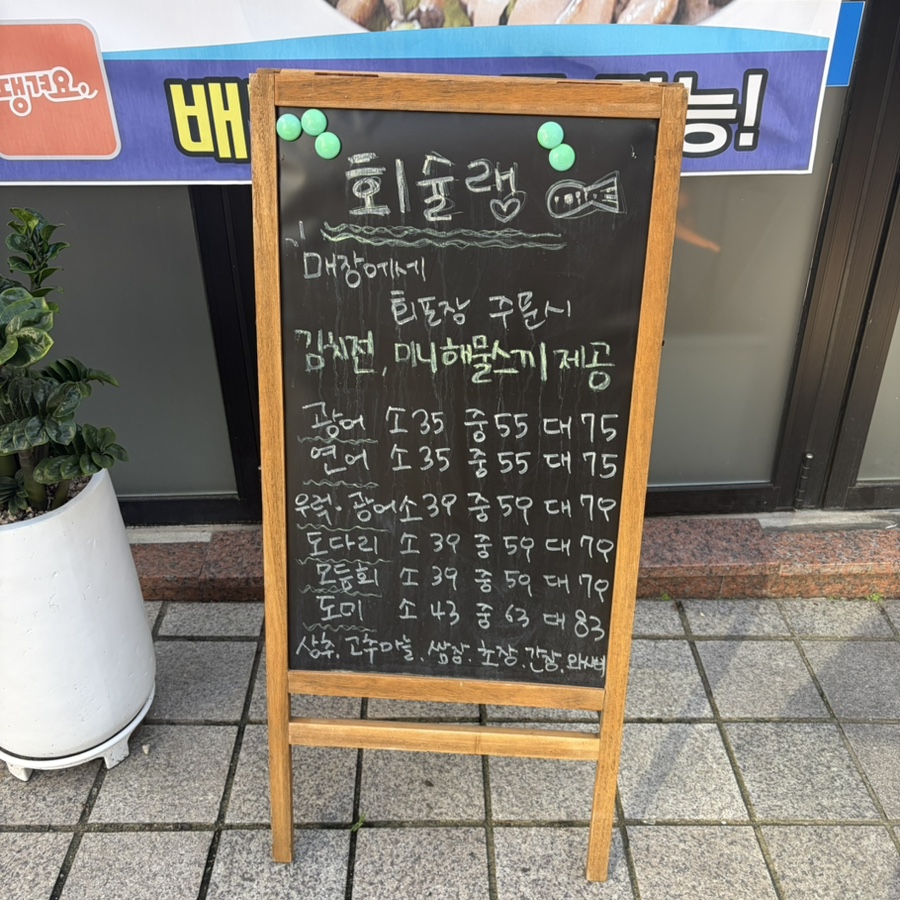 땡겨요
배
능!
회술랩
매장에서
회포장 주문시
김치전, 미니해물스끼 제공
광어 소 35 중 55 대 75
연어 소 35 중 55 대 75
우럭·광어 소 39 중 59 대 79
도다리 소 39 중 59 대 79
모듬회 소 39 중 59 대 79
도미 소 43 중 63 대 83
상추, 고추마늘, 쌈장, 초장, 간장, 와사비